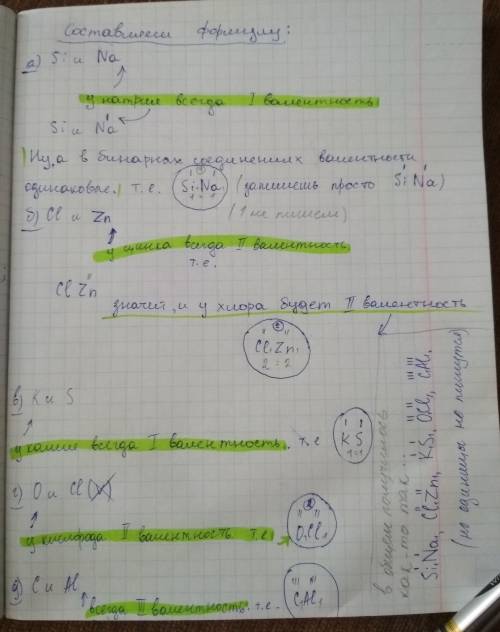 Составляем формулу:
а) Si и Na
у натрия всегда I валентность
Si и Na
I
Ну, а в бинарных соединениях валентности
одинаковые. т.е. Si₁Na₁ (запишешь просто SiNa)
I I
1 : 1
I I
б) Cl и Zn (1 не пишем)
у цинка всегда II валентность
т.е.
II
Cl Zn
значит, и у хлора будет II валентность
II 2 II
Cl₁Zn₁
2 : 2
в) K и S
у калия всегда I валентность. т.е
I I
K S
1:1
г) O и Cl (V)
у кислорода II валентность т.е.
II 2 II
O₁Cl₁
д) C и Al
всегда III валентность. т.е.
III III
C₁Al₁
в общем получилось
как-то так...
I I II II I I II II III III
Si₁Na₁ Cl₁Zn₁ KS₁ OCl₁ CAl₁
(но единицы не пишутся)